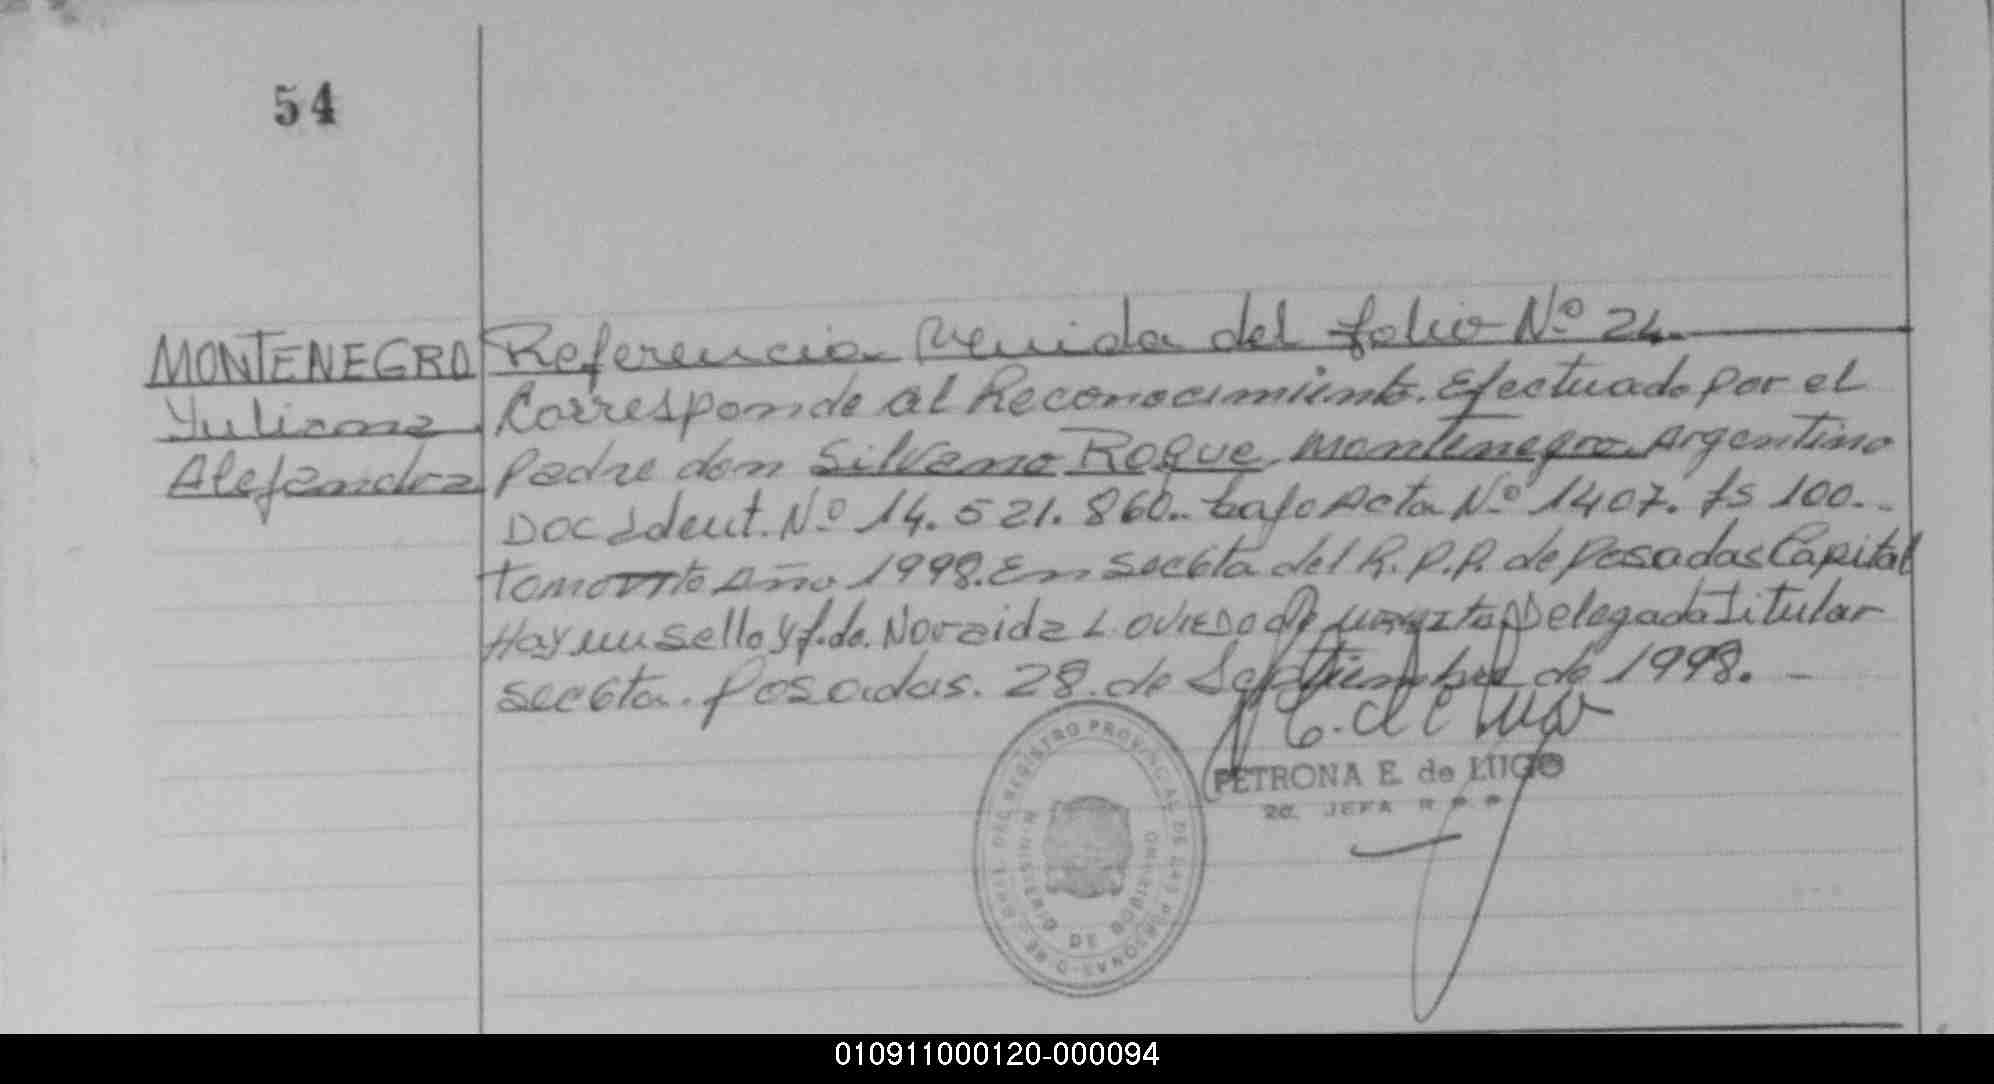 54
MONTENEGRO
Yuliana
Alejandra
Referencia Venida del folio Nº 24.
Corresponde al Reconocimiento. Efectuado por el
padre don Silvano Roque Montenegro Argentino
DOC Ident. Nº 14.521.860.. bajo Acta Nº 1407. fs 100..
tomo Año 1998. En Sec 6ta del R.P.P. de Posadas Capital
Hay un sello y f.do. Noraida L. OVIEDO de Delegada Titular
sec 6ta. Posadas. 28. de Septiembre de 1998. -
PETRONA E. de LUGO
2a. JEFA R.P.P.
REGISTRO PROVINCIAL DE LAS PERSONAS
MINISTERIO DE GOBIERNO
010911000120-000094